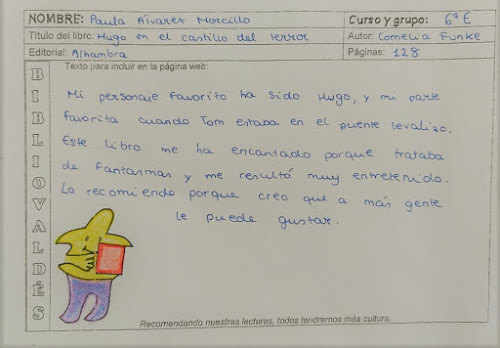 NOMBRE: Paula Álvarez Morcillo Curso y grupo: 6º E
Título del libro: Hugo en el castillo del terror Autor: Cornelia Funke
Editorial: Alhambra Páginas: 128
Texto para incluir en la página web:
Mi personaje favorito ha sido Hugo, y mi parte
favorita cuando Tom estaba en el puente levadizo.
Este libro me ha encantado porque trataba
de fantasmas y me resultó muy entretenido.
Lo recomiendo porque creo que a más gente
le puede gustar.
BIBLIOVALDÉS
Recomendando nuestras lecturas, todos tendremos más cultura.